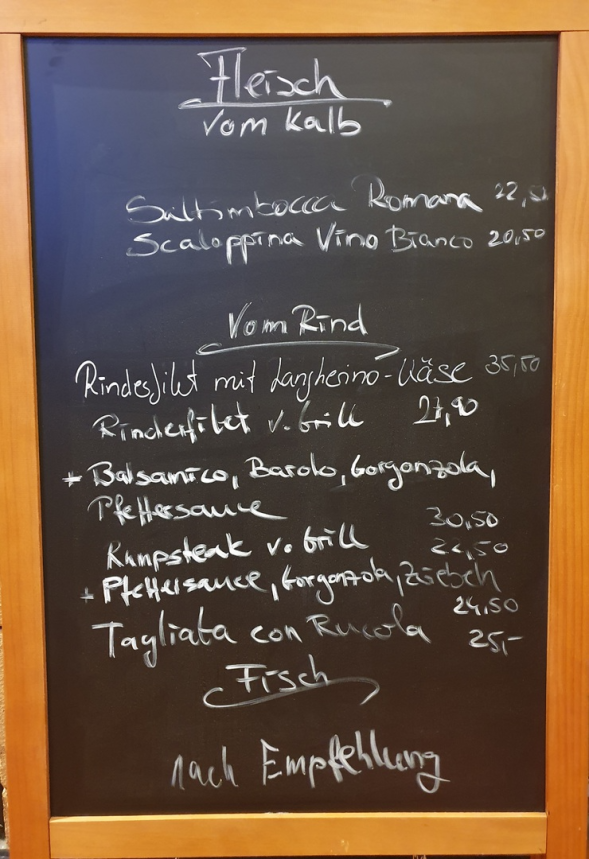 Fleisch
vom Kalb
Saltimbocca Romana 22,50
Scaloppina Vino Bianco 20,50
Vom Rind
Rindesfilet mit Langherino-Käse 35,50
Rinderfilet v. Grill 27,90
+ Balsamico, Barolo, Gorgonzola,
Pfeffersauce 30,50
Rumpsteak v. Grill 22,50
+ Pfeffersauce, Gorgonzola, Zwiebeln
24,50
Tagliata con Rucola 25,-
Fisch
nach Empfehlung